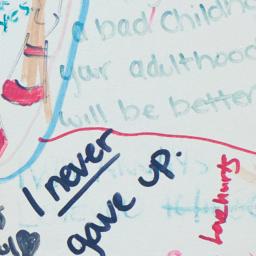 yes.
a bad Childho
your adulthood
will be better
I never
gave up.
Love hurts